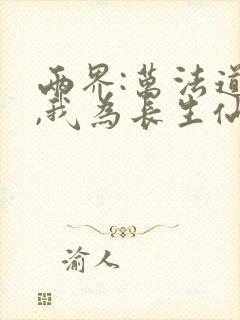 兩界:萬法道
,我為長生仙
渝人